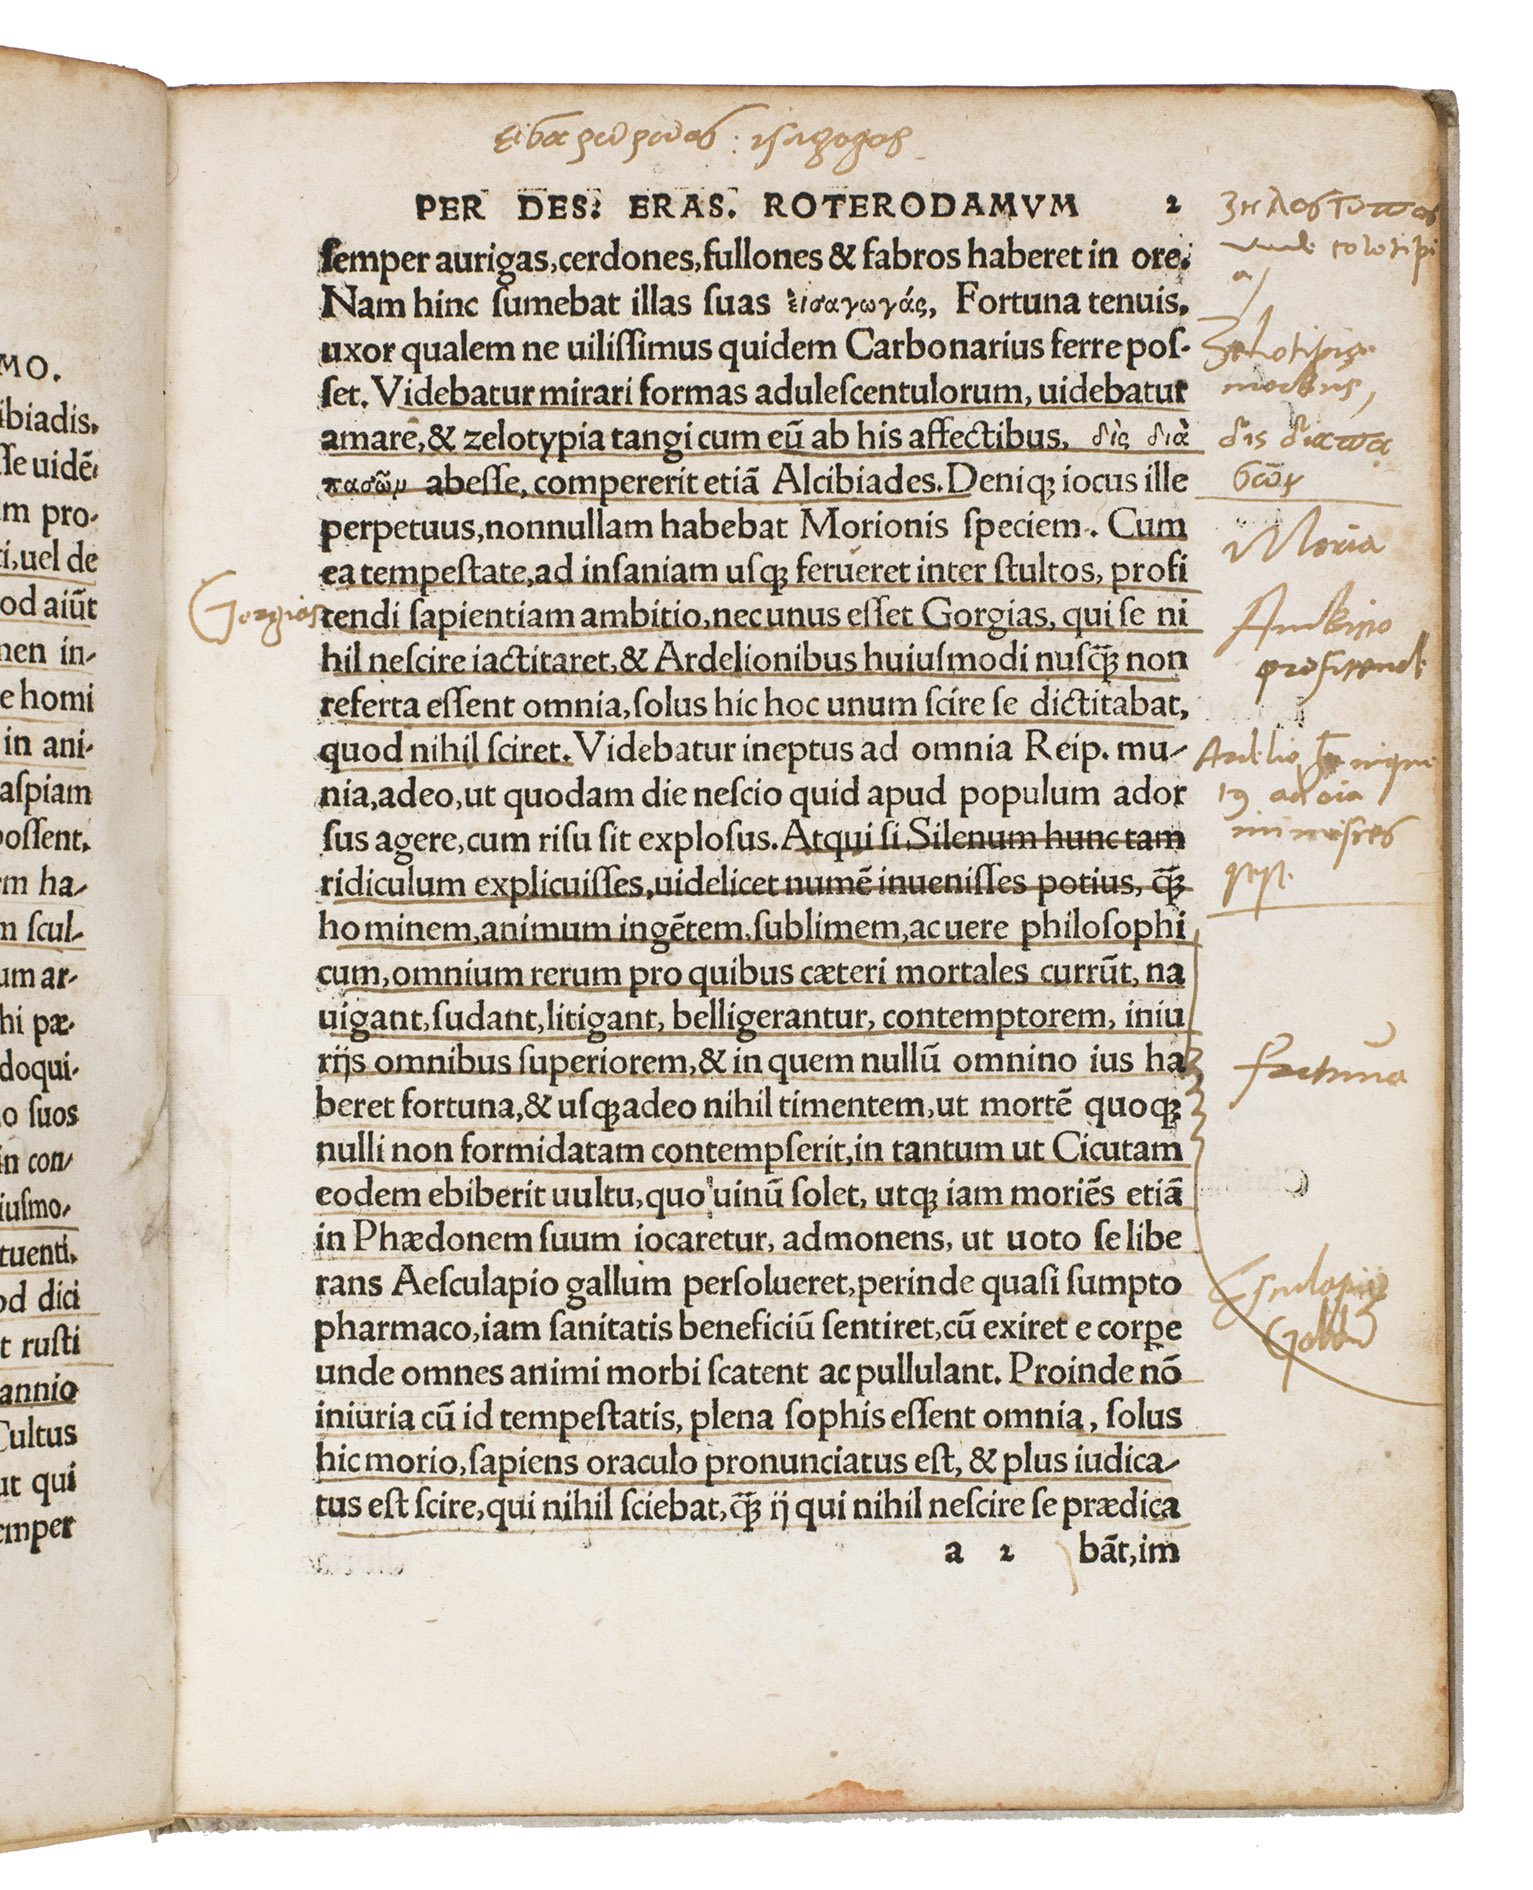 MO.
ibiadis,
sse uidē-
m pro-
i, uel de
od aiūt
men in-
e homi
in ani-
aspiam
possent.
m ha-
m scul-
um ar-
hi pæ-
doqui-
o suos
in con-
iusmo-
tuenti,
od dici
t rusti
annio
Cultus
ut qui
emper
PER DES: ERAS. ROTERODAMVM 2
semper aurigas, cerdones, fullones & fabros haberet in ore.
Nam hinc sumebat illas suas εἰσαγωγάς, Fortuna tenuis,
uxor qualem ne uilissimus quidem Carbonarius ferre pos-
set. Videbatur mirari formas adulescentulorum, uidebatur
amare, & zelotypia tangi cum eū ab his affectibus, δὶς διὰ
πασῶμ abesse, compererit etiā Alcibiades. Deniq; iocus ille
perpetuus, nonnullam habebat Morionis speciem. Cum
ea tempestate, ad insaniam usq; ferueret inter stultos, profi
Gorgias
tendi sapientiam ambitio, nec unus esset Gorgias, qui se ni
hil nescire iactitaret, & Ardelionibus huiusmodi nusq̃; non
referta essent omnia, solus hic hoc unum scire se dictitabat,
quod nihil sciret. Videbatur ineptus ad omnia Reip. mu-
nia, adeo, ut quodam die nescio quid apud populum ador
sus agere, cum risu sit explosus. Atqui si Silenum hunc tam
ridiculum explicuisses, uidelicet numē inuenisses potius, q̃;
hominem, animum ingētem, sublimem, ac uere philosophi
cum, omnium rerum pro quibus cæteri mortales currūt, na
uigant, sudant, litigant, belligerantur, contemptorem, iniu
rijs omnibus superiorem, & in quem nullū omnino ius ha
beret fortuna, & usq;adeo nihil timentem, ut mortē quoq;
nulli non formidatam contempserit, in tantum ut Cicutam
eodem ebiberit uultu, quo uinū solet, utq; iam moriēs etiā
in Phædonem suum iocaretur, admonens, ut uoto se libe
rans Aesculapio gallum persolueret, perinde quasi sumpto
pharmaco, iam sanitatis beneficiū sentiret, cū exiret e corpe
unde omnes animi morbi scatent ac pullulant. Proinde nō
iniuria cū id tempestatis, plena sophis essent omnia, solus
hic morio, sapiens oraculo pronunciatus est, & plus iudica-
tus est scire, qui nihil sciebat, q̃; ij qui nihil nescire se prædica
a 2 bāt, im
Zelotipię
morbus,
δις διαπα
σῶμ
Moria
Ambitio
profitendi
fortuna
Esculapio